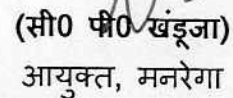 (सी0 पी0 खंडूजा)
आयुक्त, मनरेगा